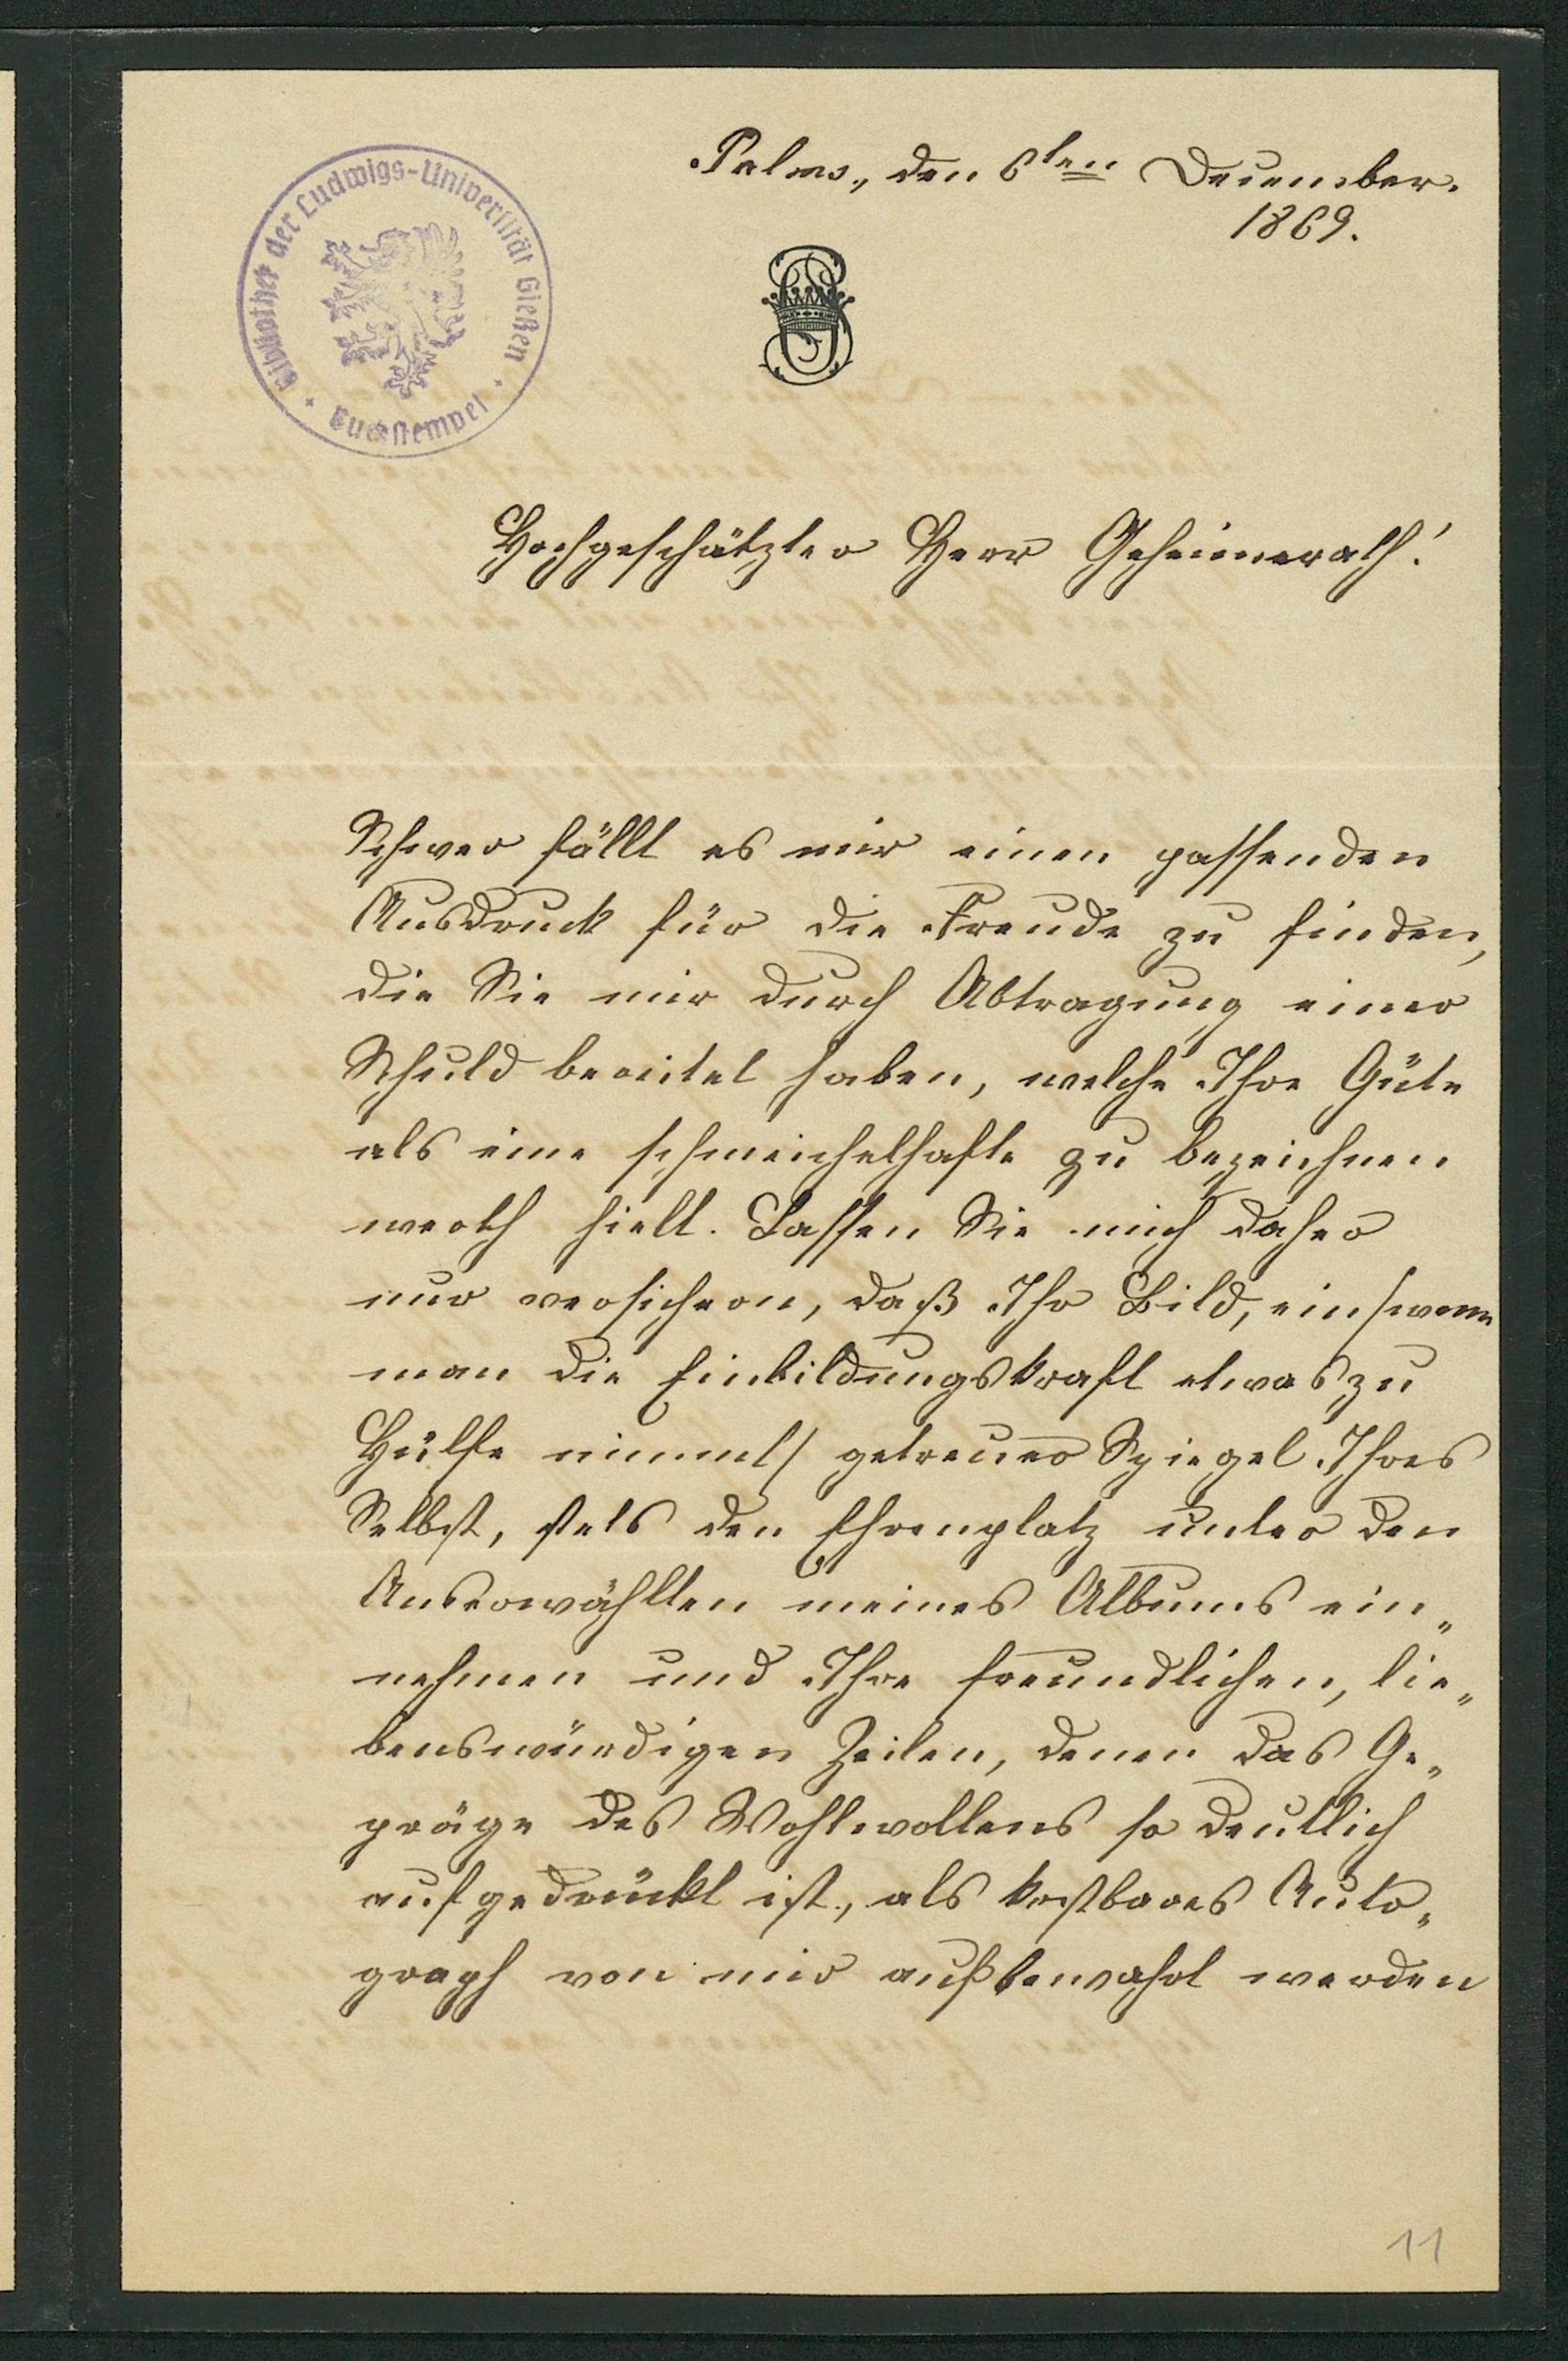 Palms, den 6ten December.
1869.
Bibliothek der Ludwigs-Universität Gießen
Buchstempel
Hochgeschätzter Herr Geheimerath!
Schwer fällt es mir einen passenden
Ausdruck für die Freude zu finden,
die Sie mir durch Abtragung einer
Schuld bereitet haben, welche Ihre Güte
als eine schmeichelhafte zu bezeichnen
werth hielt. Lassen Sie mich daher
nur versichern, daß Ihr Bild, ein /wenn
man die Einbildungskraft etwas zu
Hülfe nimmt/ getreuer Spiegel Ihres
Selbst, stets den Ehrenplatz unter den
Auserwählten meines Albums ein„
nehmen und Ihre freundlichen, lie„
benswürdigen Zeilen, denen das Ge„
präge des Wohlwollens so deutlich
aufgedrückt ist, als kostbares Auto„
graph von mir aufbewahrt werden
11